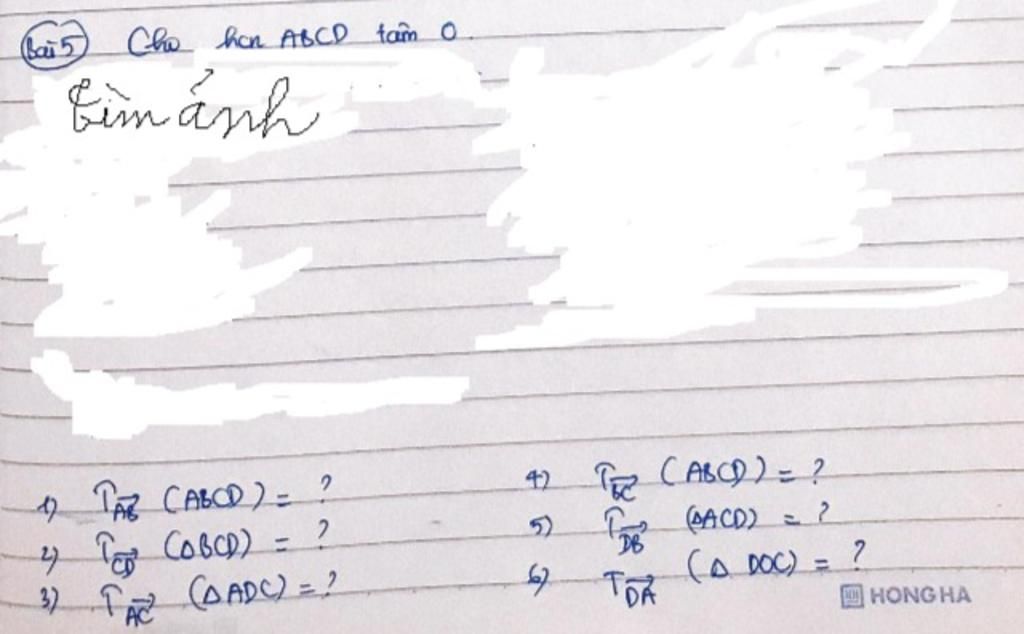 Bài 5 Cho hcn ABCD tâm O.
Tìm ảnh
1) T_{\overrightarrow{AB}} (ABCD) = ?
2) T_{\overrightarrow{CD}} (ΔBCD) = ?
3) T_{\overrightarrow{AC}} (ΔADC) = ?
4) T_{\overrightarrow{BC}} (ABCD) = ?
5) T_{\overrightarrow{DB}} (ΔACD) = ?
6) T_{\overrightarrow{DA}} (Δ DOC) = ?
HONG HA